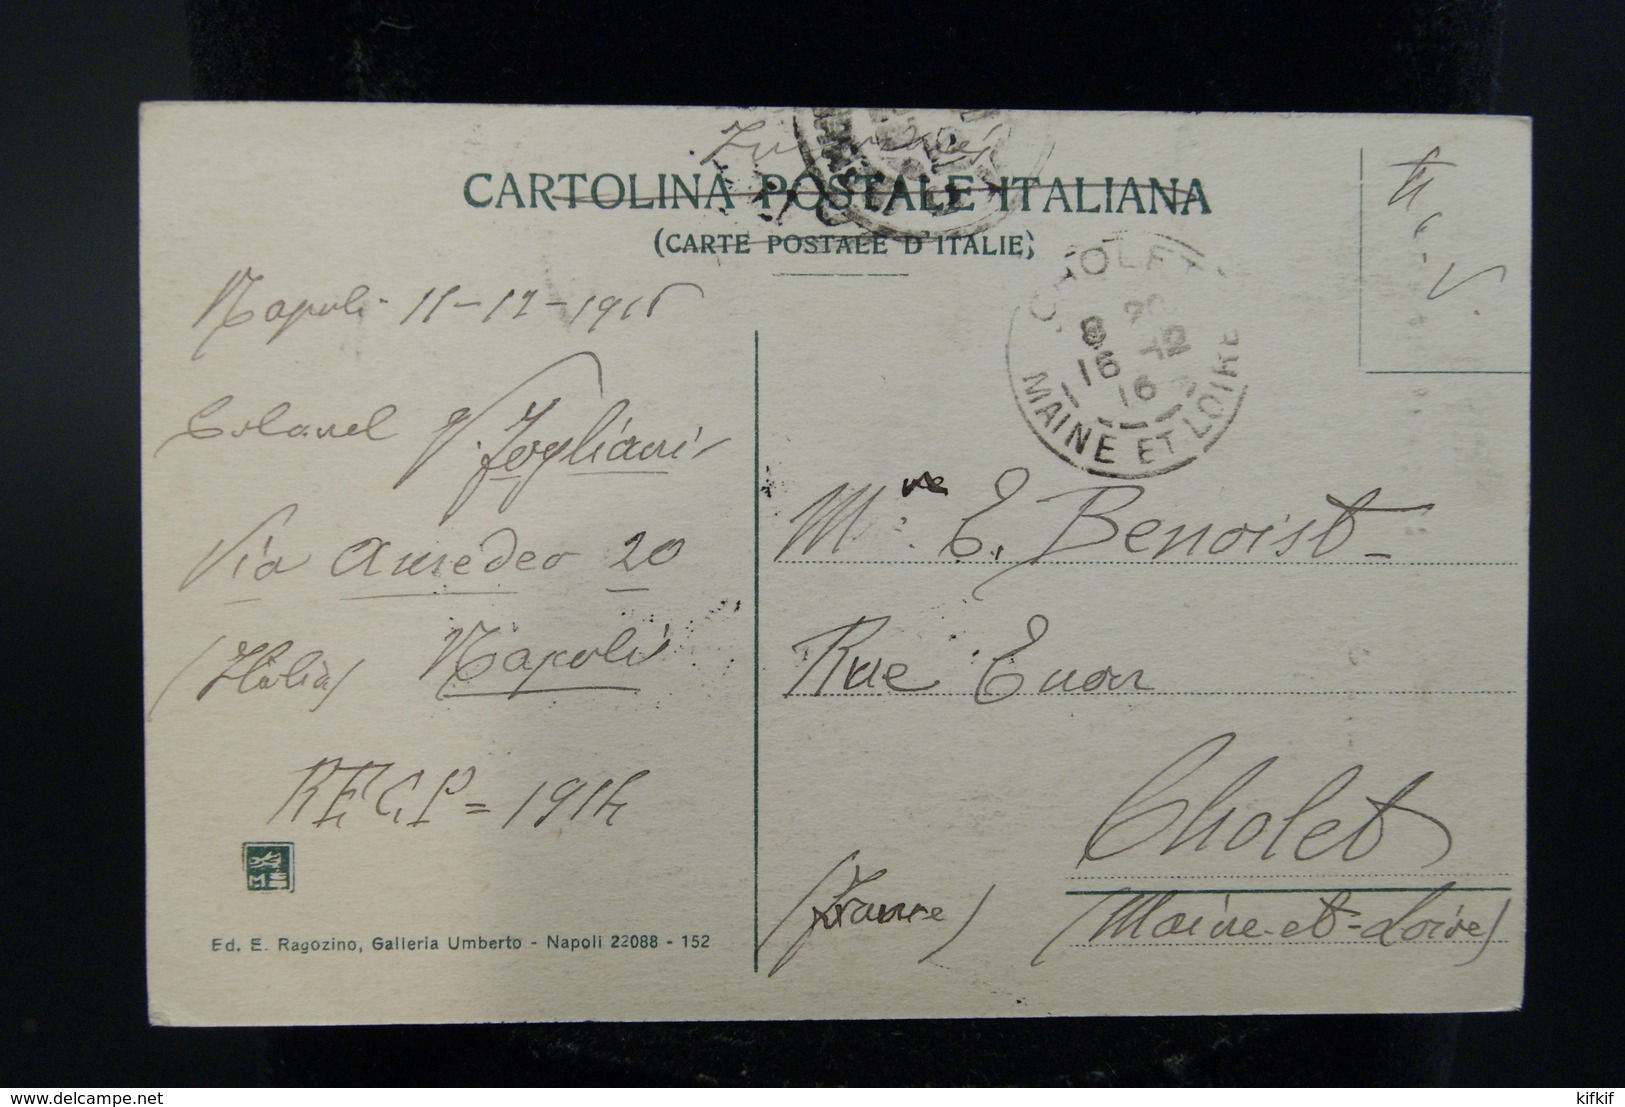 CARTOLINA POSTALE ITALIANA
(CARTE POSTALE D'ITALIE)
CHOLET
20
8 -12
16 16
MAINE ET LOIRE
Napoli - 11-12-1916
Colonel V. Fogliani
Via Amedeo 20
(Italia) Napoli
= 1914
Ed. E. Ragozino, Galleria Umberto - Napoli 22088 - 152
Mme E. Benoist
Rue
Cholet
(France) (Maine-et-Loire)
www.delcampe.net
kifkif